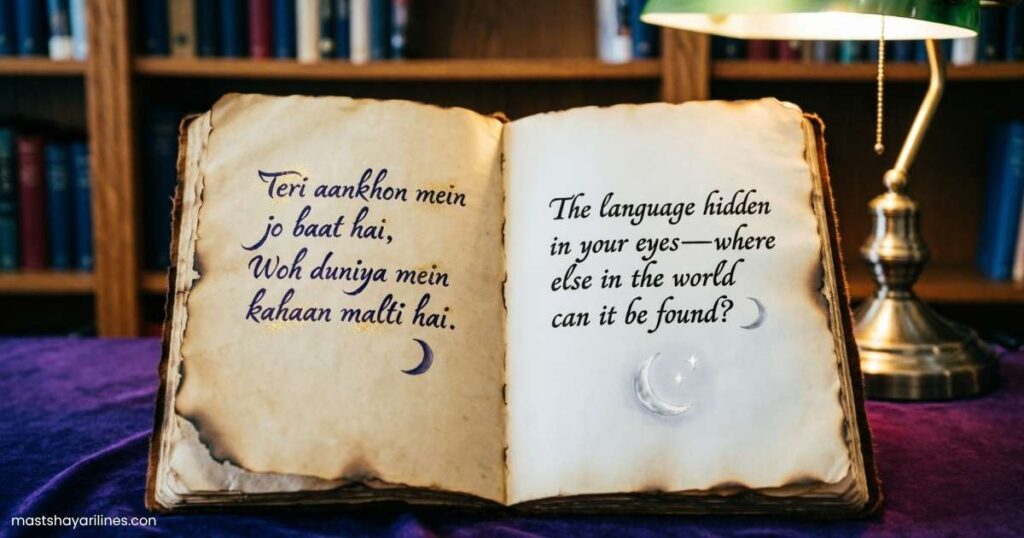 Teri aankhon mein
jo baat hai,
Woh duniya mein
kahaan malti hai.
The language hidden
in your eyes—where
else in the world
can it be found?
mastshayarilines.com